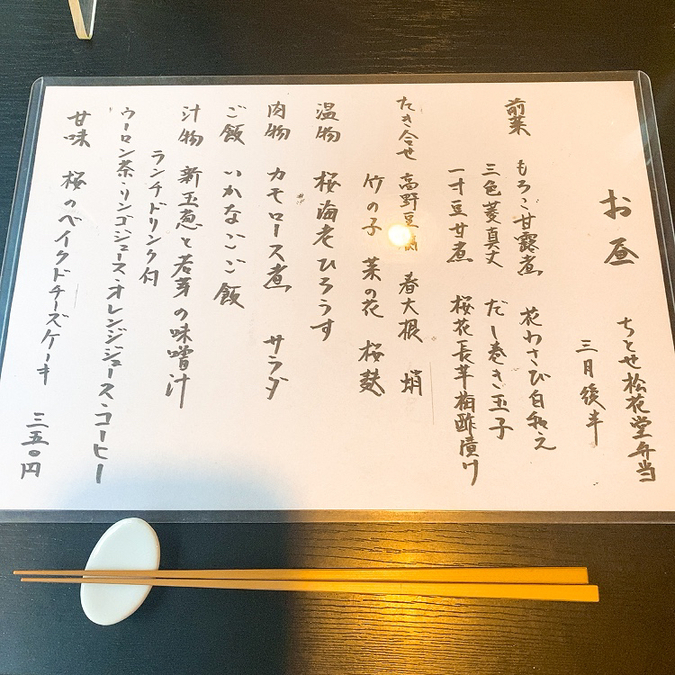 お昼 ちとせ松花堂弁当
三月後半
前菜 もろこ甘露煮 花わさび白和え
三色菱真丈 だし巻き玉子
一寸豆甘煮 桜花長芋梅酢漬け
たき合せ 高野豆腐 春大根 蛸
竹の子 菜の花 桜麩
温物 桜海老ひろうす
肉物 カモロース煮 サラダ
ご飯 いかなごご飯
汁物 新玉葱と若芽の味噌汁
ランチドリンク付
ウーロン茶・リンゴジュース・オレンジジュース・コーヒー
甘味 桜のベイクドチーズケーキ 三五〇円